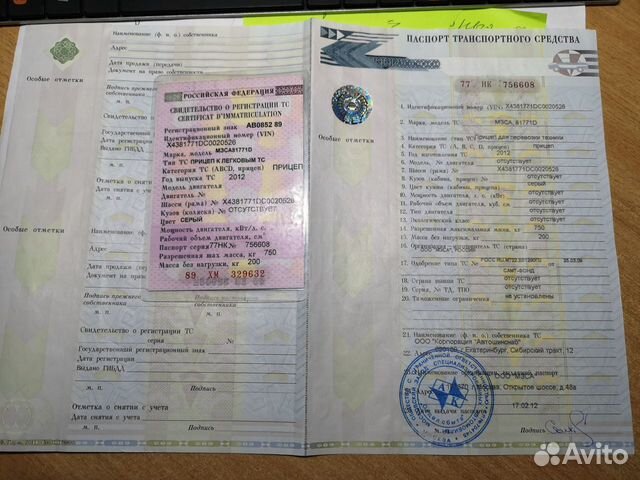 Наименование (ф. и. о.) собственника
Адрес
Дата продажи (передачи)
Документ на право собственности
Особые отметки
Подпись прежнего собственника
М. П.
Свидетельство о
серия
Государственный
Выдано ГИБДД
М. П.
Отметка о снятии с
Дата снятия с учета
М. П.
Наименование
Адрес
Особые отметки
Дата продажи
Документ на
Подпись прежнего собственника
М. П.
Подпись настоящего собственника
Свидетельство о регистрации ТС
серия №
Государственный регистрационный знак
Выдано ГИБДД
М. П.
Подпись
Отметка о снятии с учета
Дата снятия с учета
М. П.
Подпись
РОССИЙСКАЯ ФЕДЕРАЦИЯ
СВИДЕТЕЛЬСТВО О РЕГИСТРАЦИИ ТС
CERTIFICAT D'IMMATRICULATION
Регистрационный знак АВ0852 89
Идентификационный номер (VIN)
X4381771DC0020526
Марка, модель МЗСА81771D
Тип ТС ПРИЦЕП К ЛЕГКОВЫМ ТС
Категория ТС (ABCD, прицеп) ПРИЦЕП
Год выпуска ТС 2012
Модель двигателя
Двигатель №
Шасси (рама) № X4381771DC0020526
Кузов (коляска) № ОТСУТСТВУЕТ
Цвет СЕРЫЙ
Мощность двигателя, кВт/л. с.
Рабочий объем двигателя, см³
Паспорт серия 77НК № 756608
Разрешенная max масса, кг 750
Масса без нагрузки, кг 200
89 ХМ 329632
ПАСПОРТ ТРАНСПОРТНОГО СРЕДСТВА
77 НК 756608
1. Идентификационный номер (VIN) X4381771DC0020526
2. Марка, модель ТС МЗСА 81771D
3. Наименование (тип ТС) Прицеп для перевозки техники
4. Категория ТС (A, B, C, D, прицеп) прицеп
5. Год изготовления ТС 2012
6. Модель, № двигателя отсутствует
7. Шасси (рама) № X4381771DC0020526
8. Кузов (кабина, прицеп) № отсутствует
9. Цвет кузова (кабины, прицепа) серый
10. Мощность двигателя, л. с. (кВт) отсутствует
11. Рабочий объем двигателя, куб. см отсутствует
12. Тип двигателя отсутствует
13. Экологический класс отсутствует
14. Разрешенная максимальная масса, кг 750
15. Масса без нагрузки, кг 200
16. Организация – изготовитель ТС (страна)
17. Одобрение типа ТС №
САМТ-ФОНД
18. Страна вывоза ТС отсутствует
19. Серия, № ТД, ТПО отсутствует
20. Таможенные ограничения не установлены
21. Наименование (ф. и. о.) собственника ТС
ООО "Корпорация "Автошинснаб"
22. г.Екатеринбург, Сибирский тракт, 12
ООО "МЗСА"
г. Москва, Открытое шоссе, д.48а
17.02.12
М. П.
Подпись
Avito